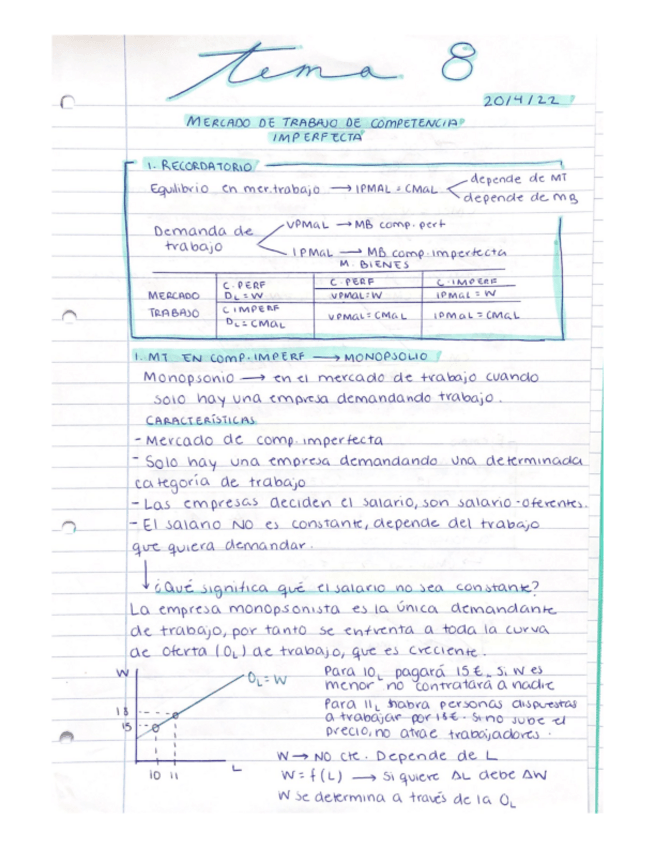 tema 8
20/4/22
MERCADO DE TRABAJO DE COMPETENCIA
IMPERFECTA
1. RECORDATORIO
Equilibrio en mer.trabajo → IPMAL = CMAL
depende de MT
depende de MB
Demanda de trabajo
VPMAL → MB comp. perf
IPMAL → MB comp. imperfecta
M. BIENES
MERCADO TRABAJO
C. PERF DL = W
C. PERF
C. IMPERF
VPMAL = W
IPMAL = W
C IMPERF DL = CMAL
VPMAL = CMAL
IPMAL = CMAL
1. MT EN COMP. IMPERF → MONOPSOLIO
Monopsonio → en el mercado de trabajo cuando
solo hay una empresa demandando trabajo.
CARACTERÍSTICAS
- Mercado de comp. imperfecta
- Solo hay una empresa demandando una determinada
categoria de trabajo
- Las empresas deciden el salario, son salario-oferentes.
- El salario NO es constante, depende del trabajo
que quiera demandar.
↓ ¿Qué significa qué el salario no sea constante?
La empresa monopsonista es la única demandante
de trabajo, por tanto se enfrenta a toda la curva
de oferta (OL) de trabajo, que es creciente.
W
OL = W
18
15
10 11
L
Para 10L pagará 15€. Si W es
menor no contratará a nadie
Para 11L habrá personas dispuestas
a trabajar por 18€. Si no sube el
precio, no atrae trabajadores.
W → NO cte. Depende de L
W = f(L) → Si quiere ΔL debe ΔW
W se determina a través de la OL